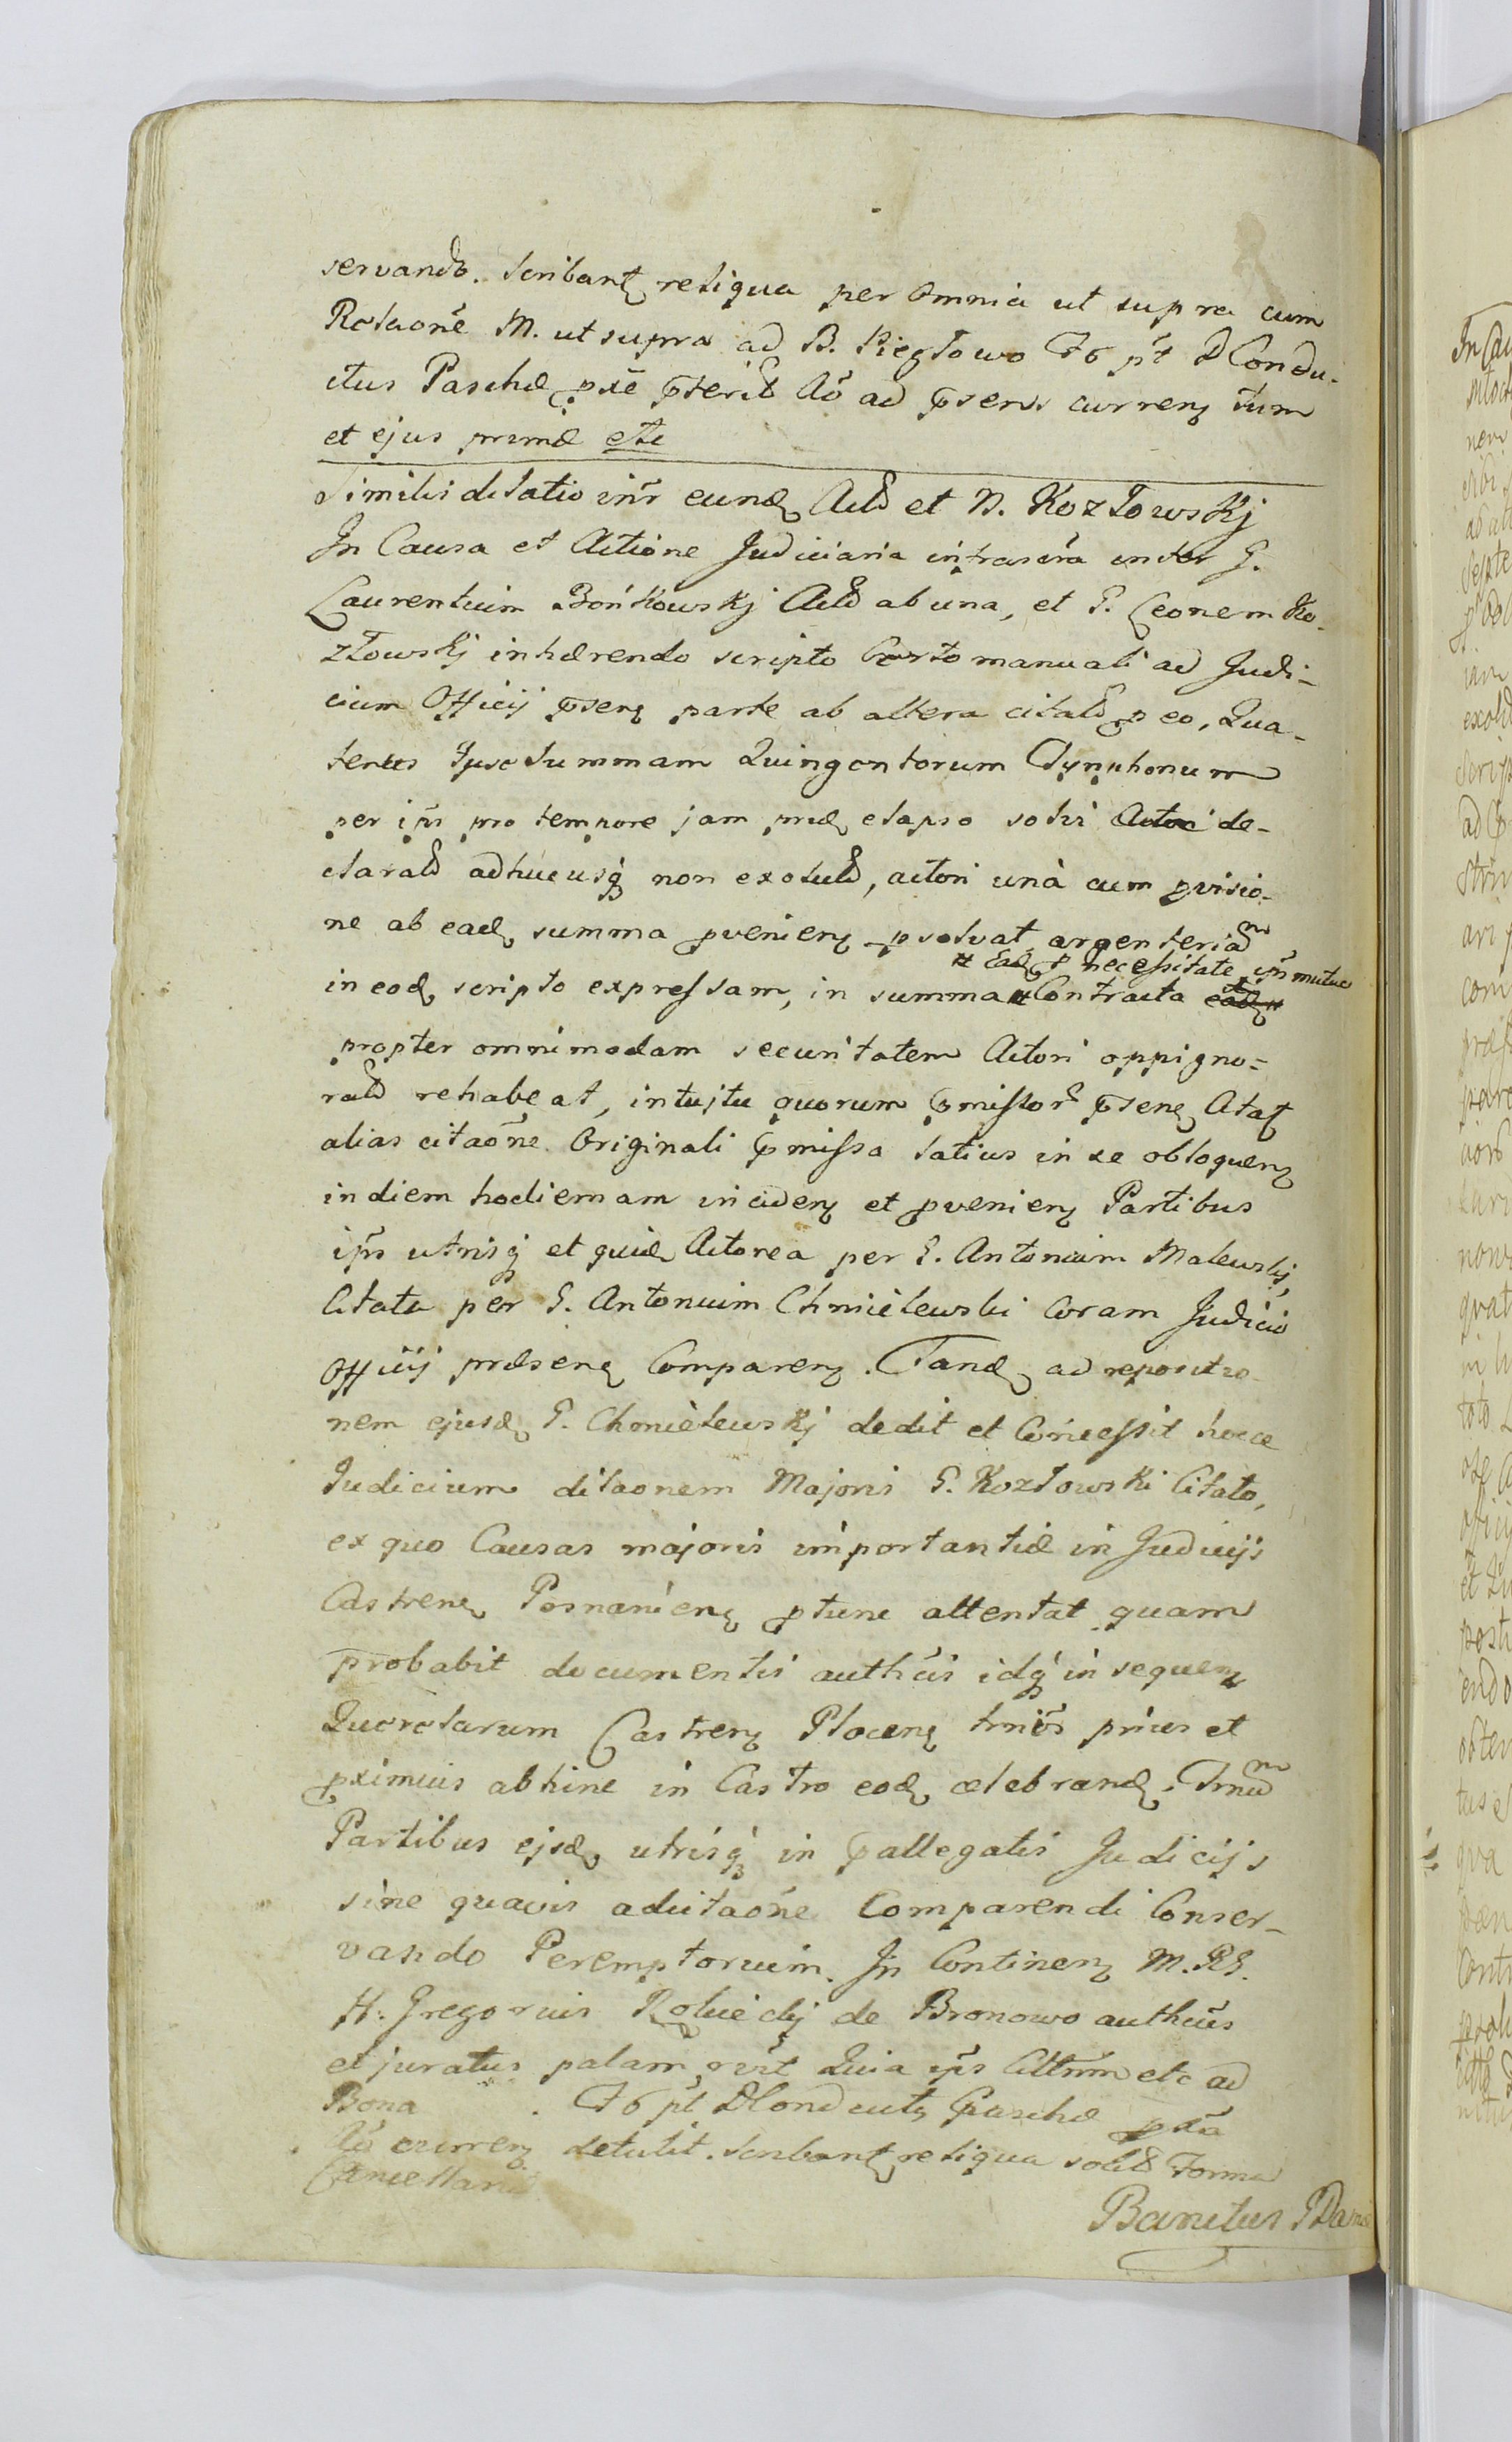 servando. Scribant reliqua per omnia ut supra cum
Relaone M. ut supra ad B. Kiegłowo F6 pt D Condu-
ctus Paschæ pxe pterit Ao ad psens curren tum
et ejus primæ etc
Similis dilatio inr eund Act et N. Kozłowskj
In Causa et Actione Judiciaria infrascra inter G.
Laurentium Bońkowskj Act ab una, et G. Leonem Ko-
złowskj inhærendo scripto Certo manuali ad Judi-
cium Officij psen parte ab altera citat p eo, Qua-
tenus Ipse Summam Quingentorum Tynphonum
per ips pro tempore jam prid elapso solvi Actori de-
clarat adhucusq non exolut, actori unà cum pvisio-
ne ab ead summa pvenien psolvat argenteriam
# Ead p necessitate ips mutuo
in eod scripto expressam, in summa # Contracta ead #
propter omnimodam securitatem Actori oppigno-
rat rehabeat, intujtu quorum pmissor psen Atat
alias citaone Originali pmissa latius in se obloquen
in diem hodiernam inciden et pvenien Partibus
ips utrisq et quid Actorea per G. Antonium Malewskj,
Citata per G. Antonium Chmielewski Coram Judicio
Officij præsen Comparen. Tand ad reposıtio-
nem ejusd G. Chmielewskj dedit et Concessit hocce
Judicium dilaonem Majoris G. Kozłowski Citato,
ex quo Causas majoris importantiæ in Judicijs
Castren Posnanien ptunc attentat quam
probabit documentis authcis idq in sequen
Querelarum Castren Plocen tmis prius et
pximius abhinc in Castro eod celebrand. Tmum
Partibus ejsd utrisq in pallegatis Judicijs
sine quavis adcitaone Comparendi Conser-
vando Peremptorium. In Continen M. RG.
H: Gregorius Rolu de Bronowo authcus
et juratus palam rvit Quia ips Attnm etc ad
Bona . F6 pt D Conductus Paschæ pxa
Ao curren detulit. Scribant reliqua solit Forma
Cancellariæ
Banitus